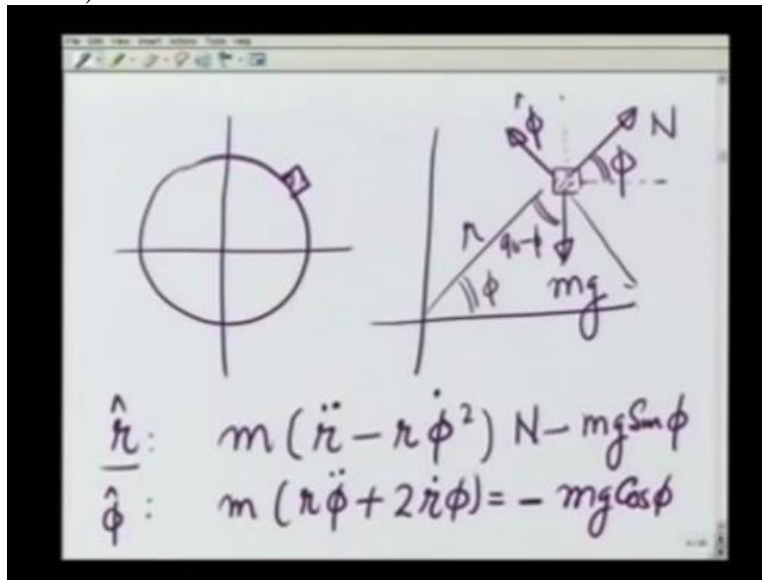 File Edit View Insert Actions Tools Help
φ̂ N
φ
r 90-φ
φ mg
r̂ : m(r̈ − rφ̇²) N − mg Sinφ
φ̂ : m(rφ̈ + 2ṙφ) = − mg Cosφ